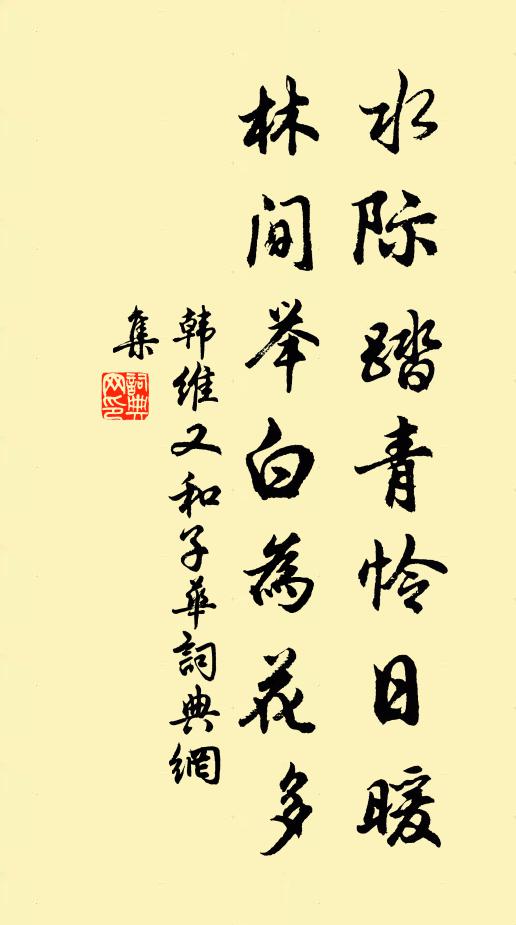 水际踏青怜日暖
林间举白为花多
韩维又和子华詞典網
集
詞典网印